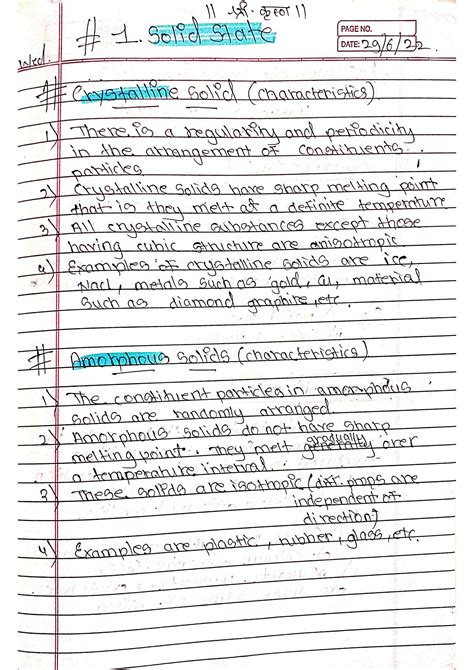 || श्री. कृष्णा ||
# 1. Solid State
PAGE NO.
DATE: 29/6/22
# Crystalline Solid (characteristics)
1) There is a regularity and periodicity
in the arrangement of constituents.
particles
2) Crystalline solids have sharp melting point
that is they melt at a definite temperature
3) All crystalline substances except those
having cubic structure are anisotropic
4) Examples of crystalline solids are ice,
Nacl, metals such as gold, cu, material
such as diamond graphite, etc.
# Amorphous solids (characteristics)
1) The constituent particles in amorphous
solids are randomly arranged.
2) Amorphous solids do not have sharp
melting point. They melt gradually over
a temperature interval.
3) These solids are isotropic ( props are
independent of
direction)
4) Examples are plastic, rubber, glass, etc.